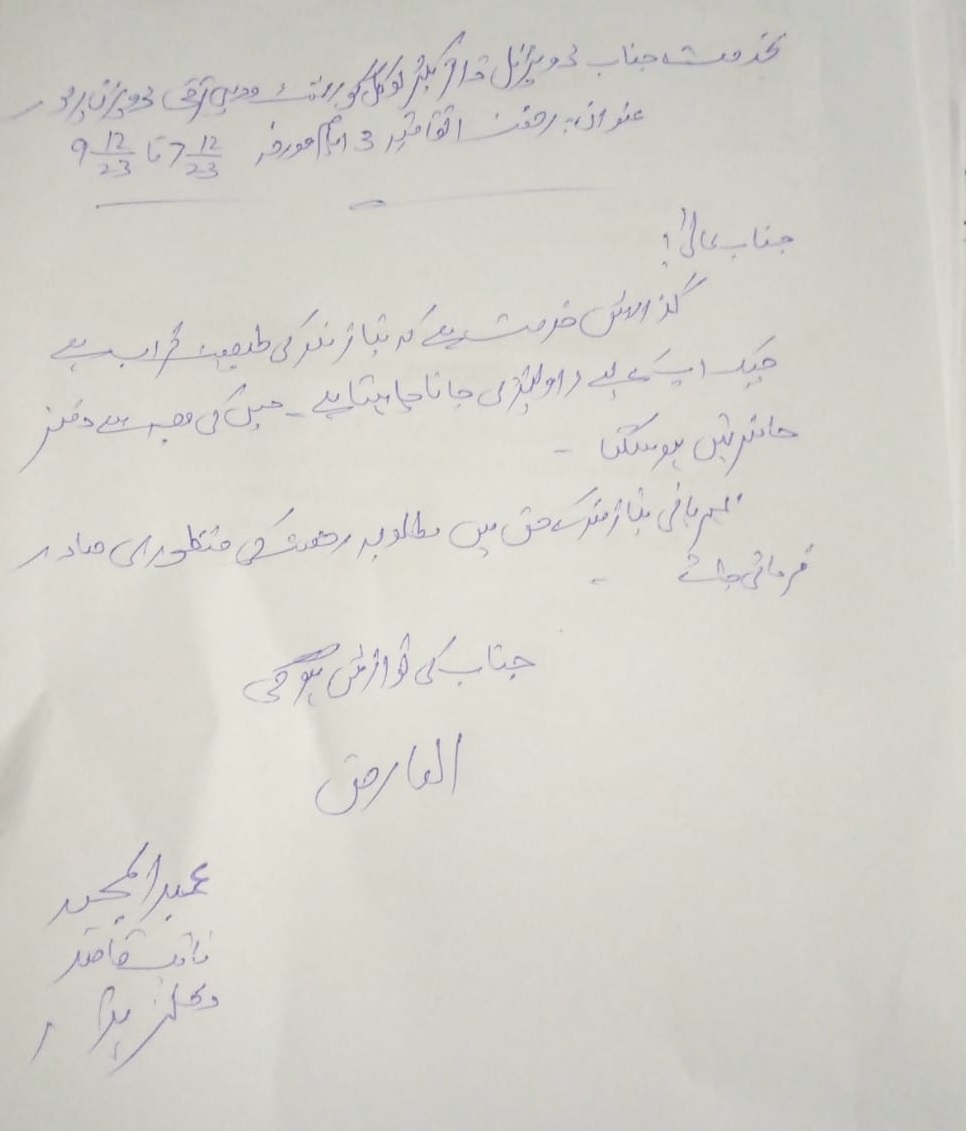 بخدمت جناب ڈویژنل ڈائریکٹر لوکل گورنمنٹ ودیہی ترقی ڈویژن
عنوان:۔ رخصت اتفاقیہ 3 ایام مورخہ 7 12/23 تا 9 12/23
جناب عالیٰ!
گذارش خدمت ہے کہ نیازمند کی طبیعت خراب ہے
چیک اپ کے لیے راولپنڈی جانا چاہتا ہے۔ جس کی وجہ سے دفتر
حاضر نہیں ہو سکتا ۔
مہربانی نیازمند کے حق میں مطلوبہ رخصت کی منظوری صادر
فرمائی جائے ۔
جناب کی نوازش ہوگی
العارض
عبدالمجید
نائب قاصد
دفتر ہذا